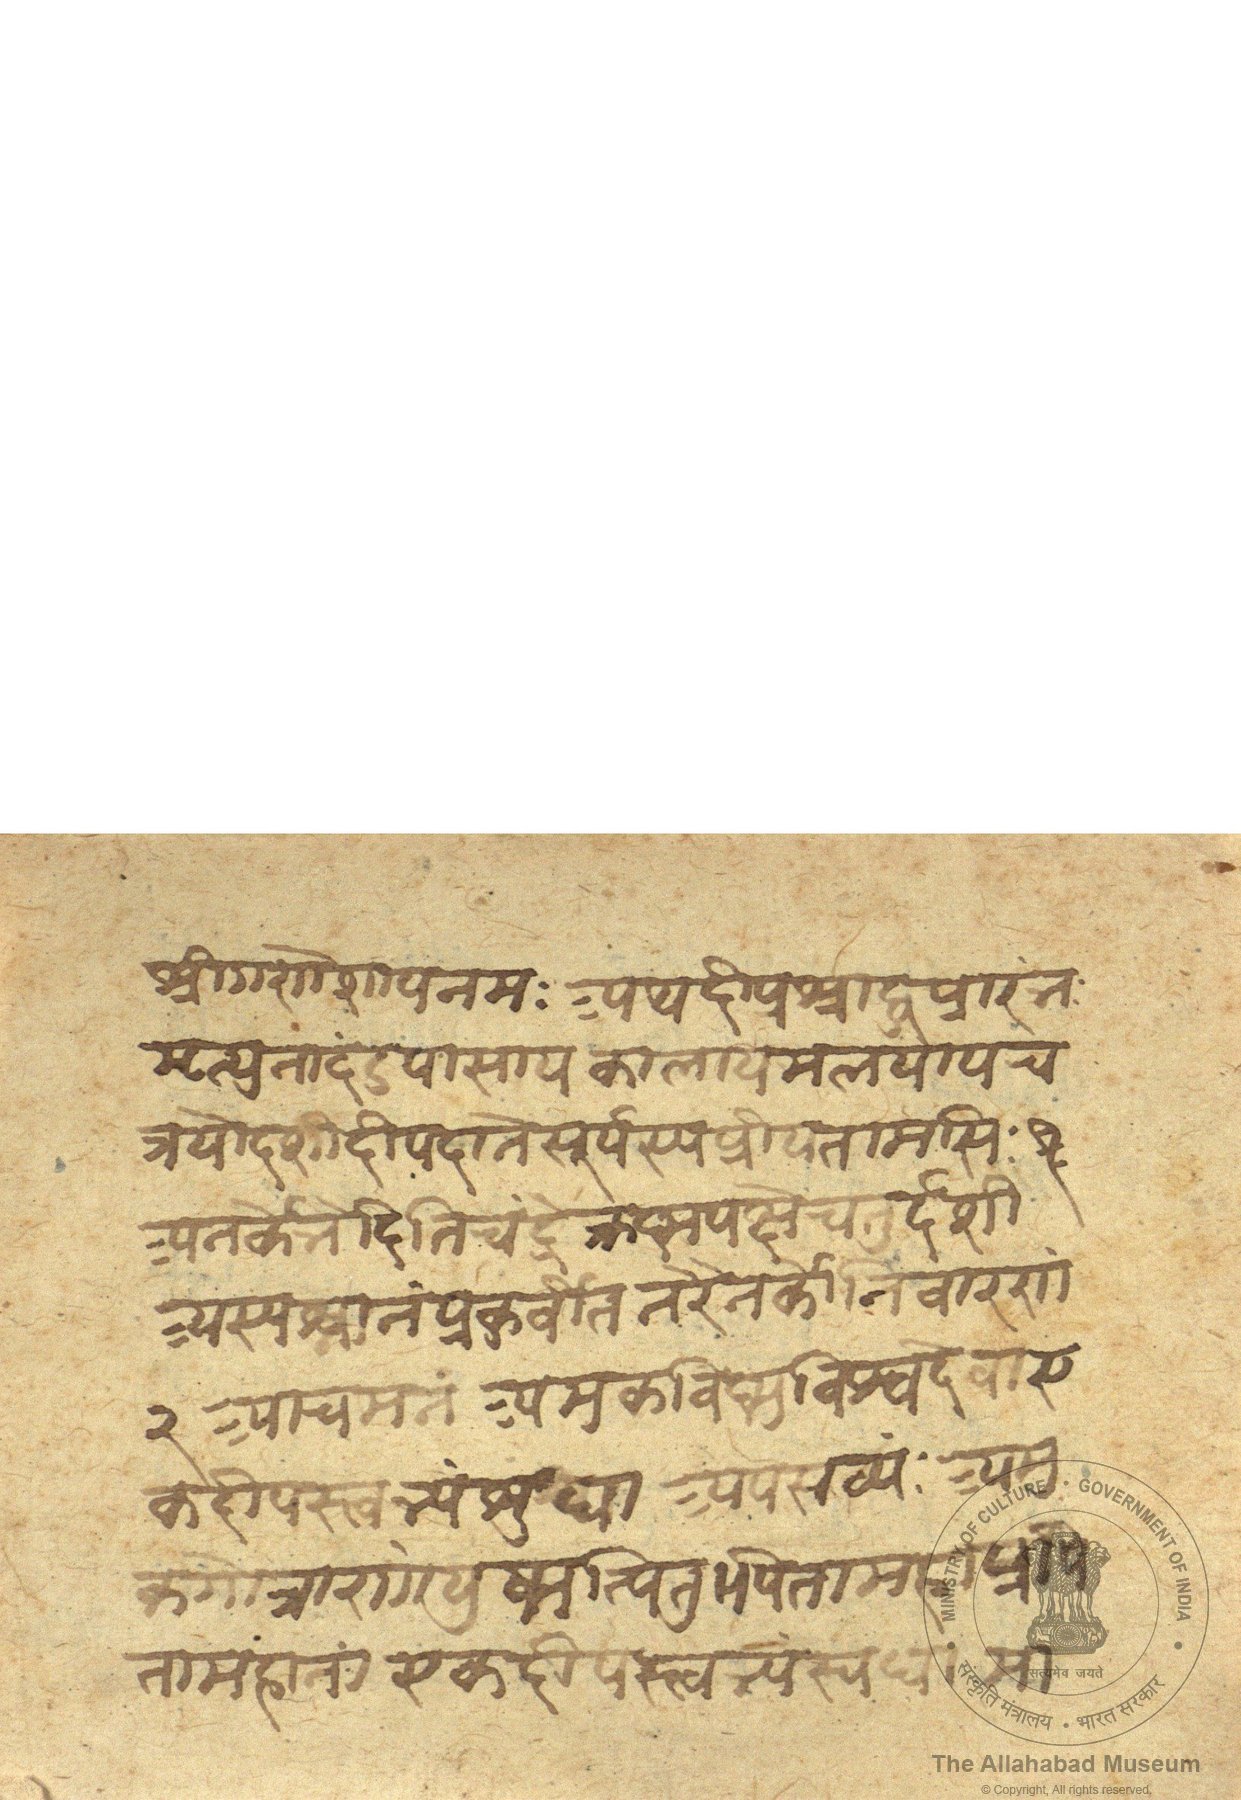 श्रीगणेशायनमः अथदीपश्राद्धप्रारंभ
मृत्युनादंडपासाय कालायमलयायच
त्रयोदशीदीपदानेसूर्यस्यप्रीयतामसिः १
अनर्केनदितिचंद्रे चतुर्दशी
अस्यश्नानंप्रकुर्वीत नरैनर्कोनिवारणं
२ आचमनं अमुकविष्णुविश्वदेवाए
कदीपस्त्वभ्यं अपसव्यं: अमु
कगोत्राराणांयुष्मत्पितु पितामह प्रपि
तामंहानां एकदीपस्त्वभ्यंस्वधा
MINISTRY OF CULTURE • GOVERNMENT OF INDIA
सत्यमेव जयते
संस्कृति मंत्रालय • भारत सरकार
The Allahabad Museum
© Copyright, All rights reserved.